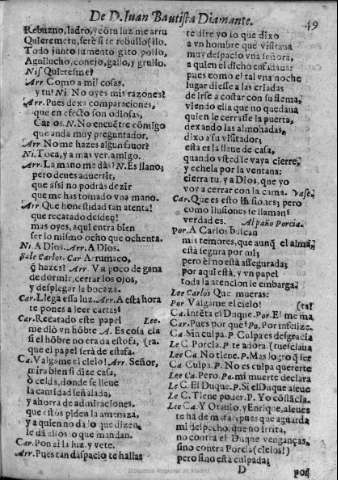 De D. Iuan Bautista Diamante. 49
Rebuzno, ladro, y con luz me arru
Quieremetu, sere si te rebullo sillo.
Todo junto jumento gito pollo,
Aguilucho, conejo, gallo, y grullo.
Nis Quieresme?
Arr. Como a mil cosas.
y tu? Ni. No oyes mis razones?
Arr. Pues dexa comparaciones,
que en efecto son odiosas,
Car. os N. No encuētre cōmigo
que anda muy preguntador.
Arr. No me hazes algun fauor?
Ni. Toca, y a mas ver, amigo.
Arr. La mano me dàs? N. Es llano;
pero deues aduertir,
que assi no podràs dezir
que me has tomado vna mano.
Arr. Que honestidad tan atenta!
que recatado desdeg!
mas oyes, aqui entra bien
ser lo mismo ocho que ochenta.
Ni. A Dios. Arr. A Dios.
Sale Carlos. Car. Arrumaco,
q̄ hazes? Arr. Vn poco de gana
de dormir, cerrar los ojos,
y desplegar la bocaza.
Car. Llega essa luz. Arr. A esta hora
te pones a leer cartas?
Car. Recatado este papel Lee.
me diò vn hōbre. A. Es cosa cla
si el hōbre no era da estofa, (ra,
que el papel serà de estafa.
Ca. Valgame el cielo! Arr. Señor,
mira bien si dize casa,
ò celda, donde se lleue
la cantidad señalada,
y ahorra de admiraciones,
que estos piden la amenaza,
y a quien no da lo que dizen,
le dà allos o que mandan.
Car. Pon ai la luz, y vete.
Arr. Pues tan despacio te hallas
te dire yo lo que dixo
a vn hombre que visitaua
muy despacio vna señora,
a quien el dicho enfadaua:
pues como el tal vna noche
lugar diesse a las criadas
de irse a costar con su flema,
viendo ella que no quedaua
quien le cerrasse la puerta,
dexando las almohadas,
dixo a su visitador;
esta es la llaue de casa,
quando vsted se vaya cierre,
y echela por la ventana:
cierra tu, y a Dios, que yo
voy a cerrar con la cama. Vase.
Car. Que es esto ilusiones; pero
como ilusiones te llaman!
verdad es. Al paño Porcia.
Por. A Carlos buscan
mis temores, que aunq̄ el alma
està segura por mi;
pero èl no està assegurada;
por aqui està, y vn papel
toda la atencion le embarga.
Lee Carlos Que mueras:
Por Valgame el cielo! (ras
Ca. Intēta el Duque. Por. El me ma
Car. Pues por què? Po. Por infelize.
Ca Mi culpa. P. Culpa es desgracia
Lee C. Porcia. P. te adora. (fuesclaua
Lee Ca. No tiene. P. Mas logro q̄ ser
Ca Culpa. P. No es culpa quererte
Lee Ca. Pero. Pa. mi muerte declara
Lee C. El Duque. P. Si el Duque aleue
Lee C. Tiene poder. P. Yo cōstācia.
Lee Ca. Y Otauio, y Enrique, aleues
te hā de matar, pues que aguarda
mi despecho, que no irrita,
no contra el Duque venganças,
sino contra Porcia (cielos!)
pero si no està culpada;
D
por